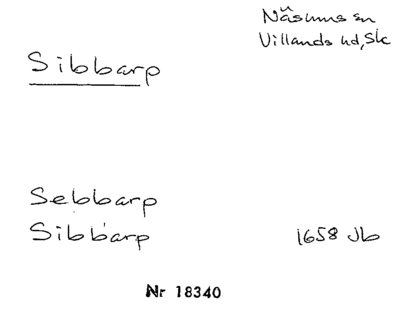 Näsums sn
Villands hd, Sk
Sibbarp
Sebbarp
Sibbarp 1658 Jb
Nr 18340